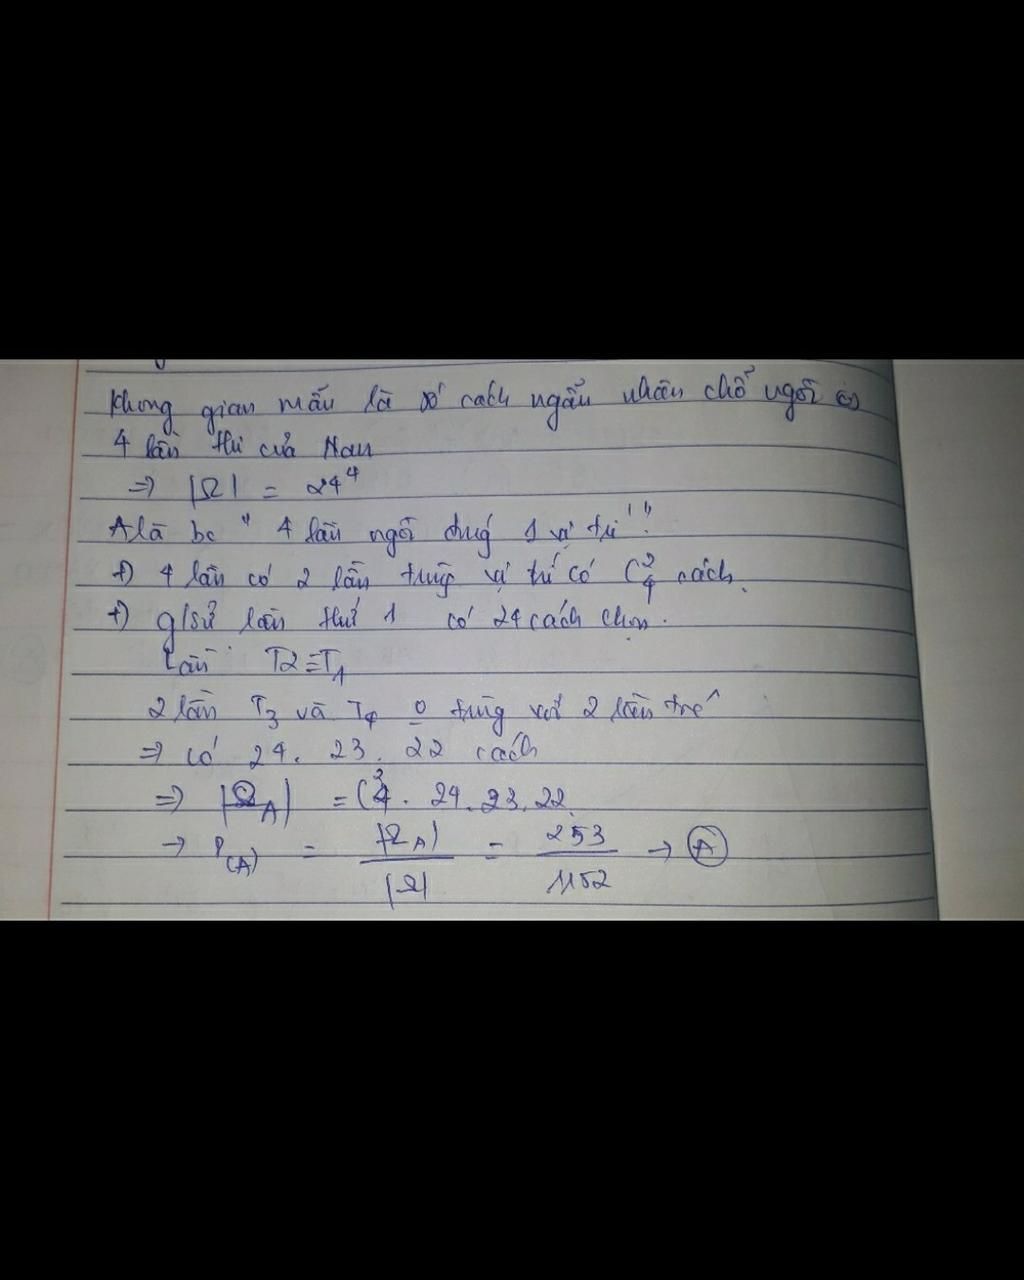 không gian mẫu là số cách ngẫu nhiên chỗ ngồi ở
4 lần thi của Nam
=> |Ω| = 24⁴
A là bc " 4 lần ngồi đúng 1 vị trí "
+) 4 lần có 2 lần trùng vị trí có C²₄ cách.
+) g/sử lần thứ 1 có 24 cách chọn.
Lần T2 ≡ T₁
2 lần T₃ và T₄ 0 trùng với 2 lần trc
=> có 24. 23. 22 cách
=> |Ω_A| = C²₄. 24. 23. 22.
-> P(A) = |Ω_A| / |Ω| = 253 / 1152 -> A